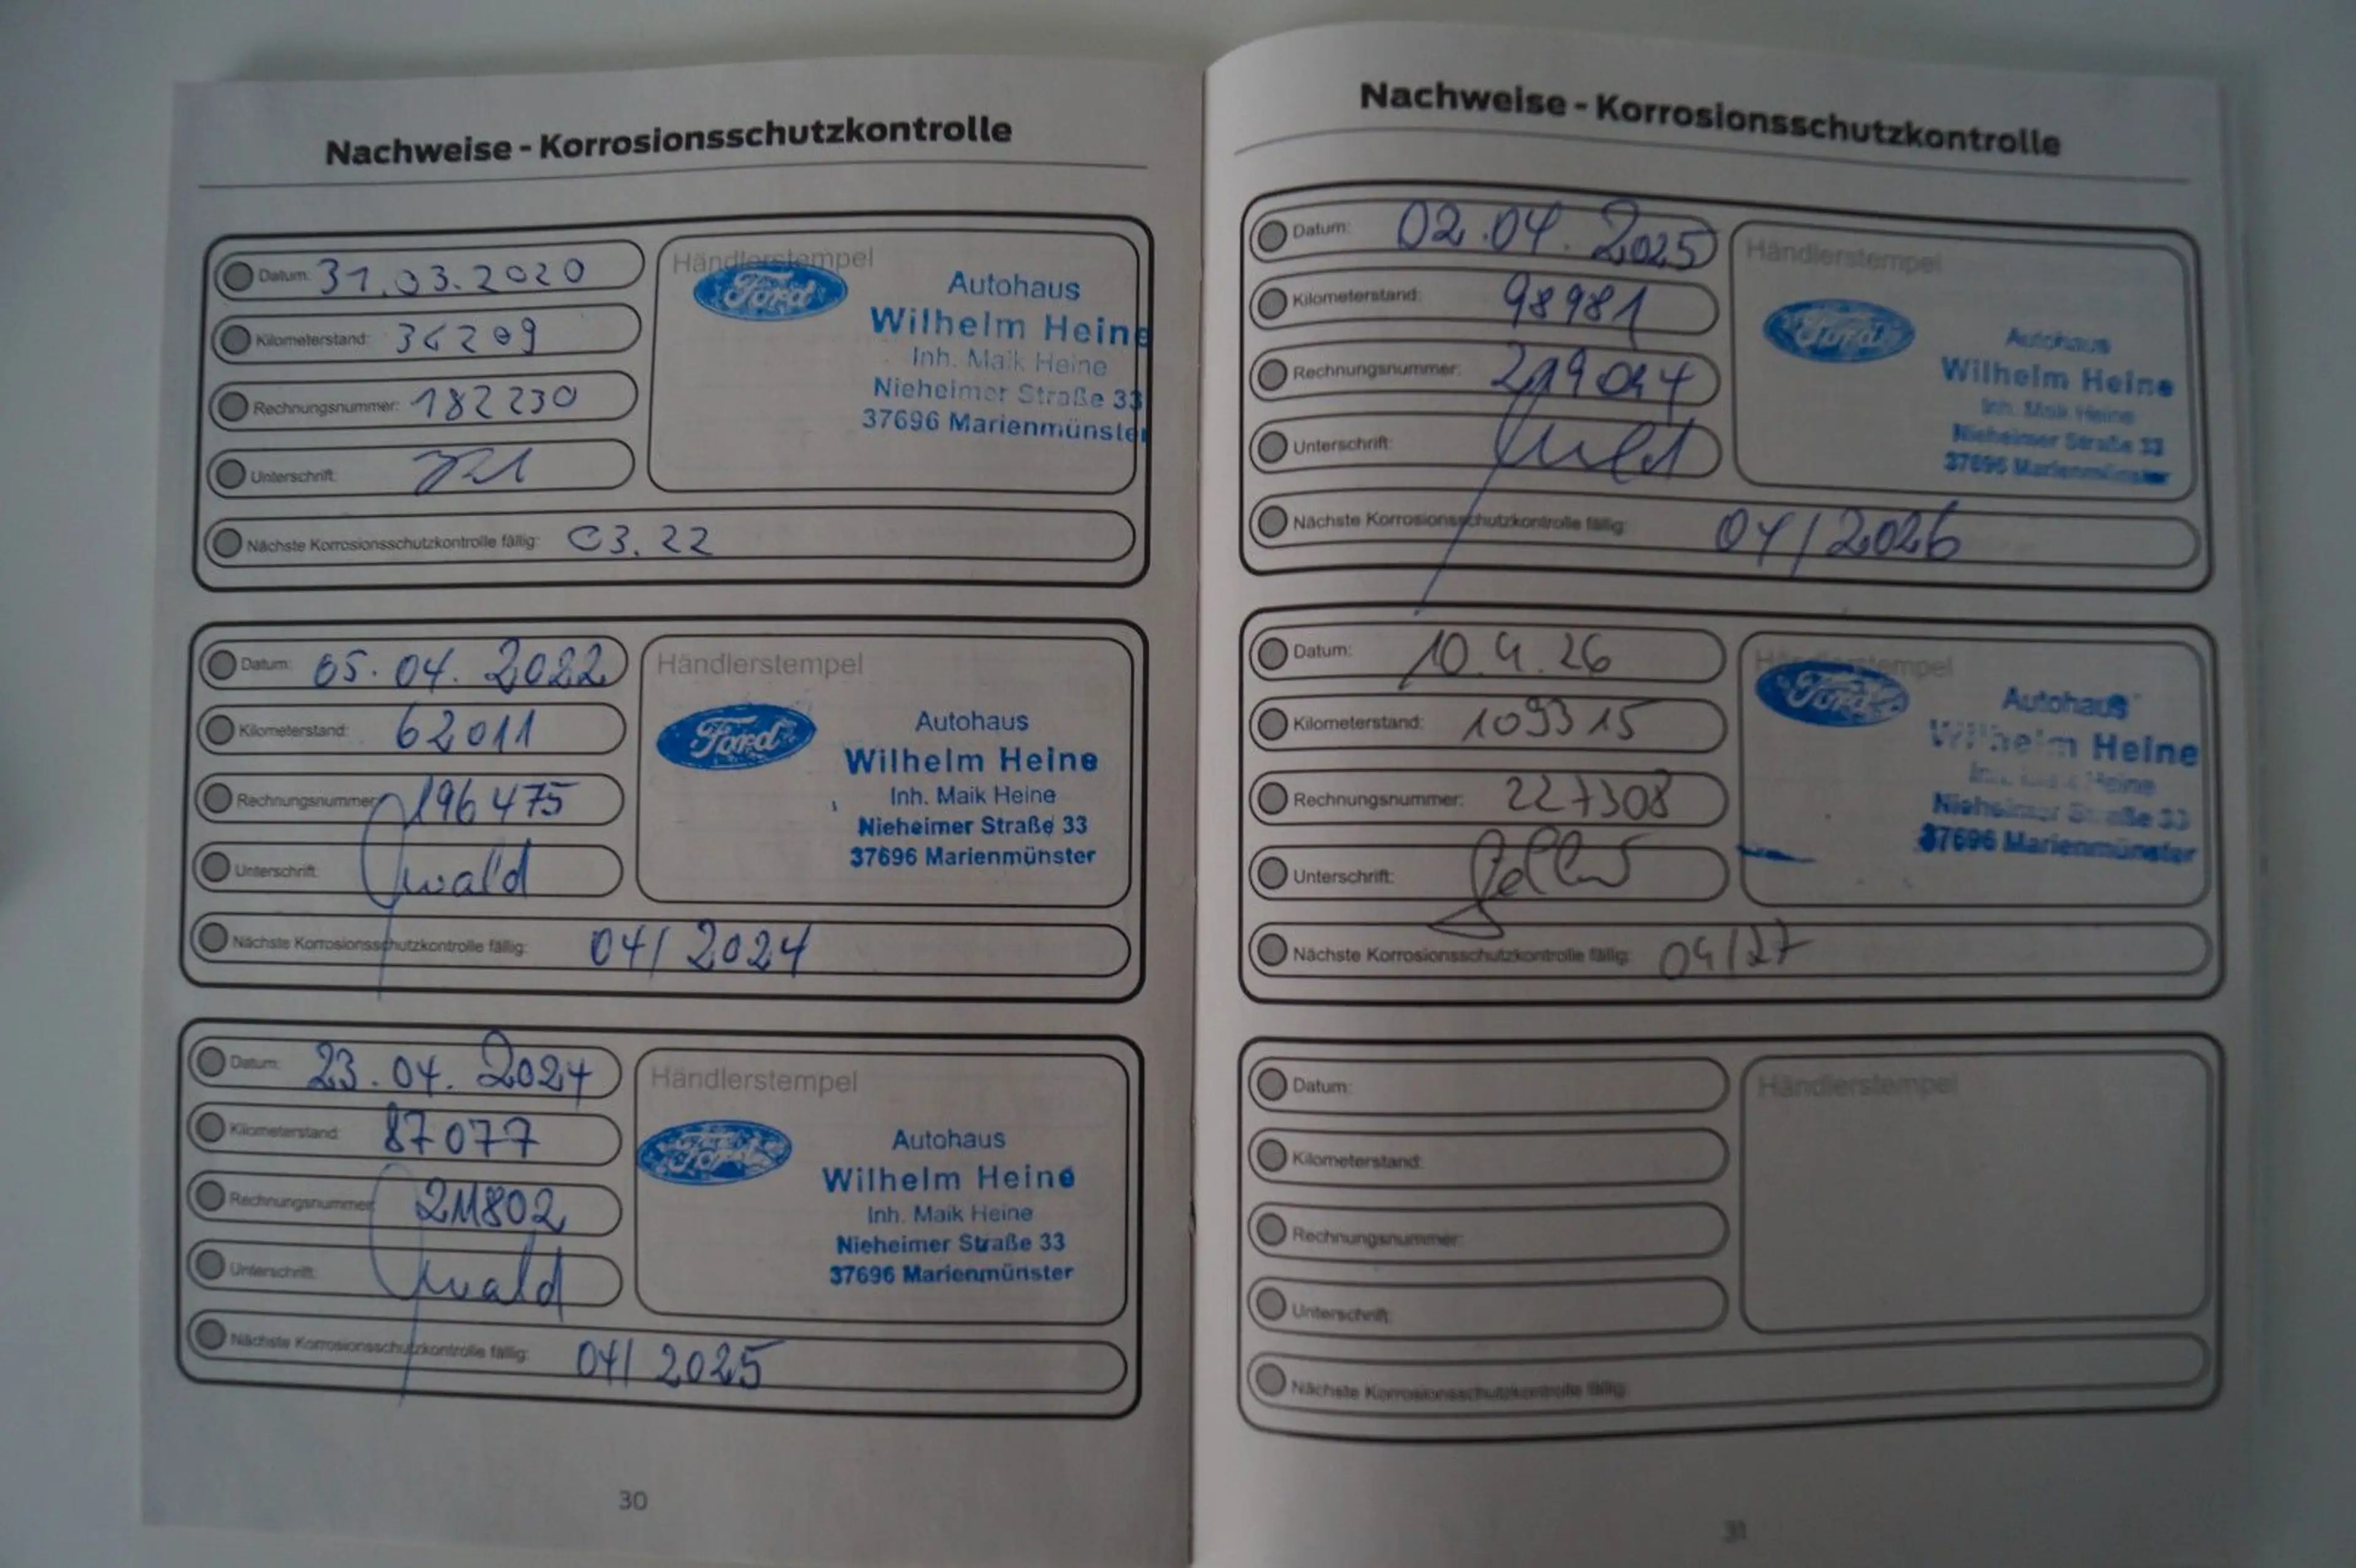 Nachweise - Korrosionsschutzkontrolle
Datum: 31.03.2020
Kilometerstand: 36209
Rechnungsnummer: 182230
Unterschrift:
Nächste Korrosionsschutzkontrolle fällig: 03.22
Händlerstempel
Ford
Autohaus
Wilhelm Heine
Inh. Maik Heine
Nieheimer Straße 33
37696 Marienmünster
Datum: 05.04.2022
Kilometerstand: 62011
Rechnungsnummer: 196475
Unterschrift:
Nächste Korrosionsschutzkontrolle fällig: 04/2024
Händlerstempel
Ford
Autohaus
Wilhelm Heine
Inh. Maik Heine
Nieheimer Straße 33
37696 Marienmünster
Datum: 23.04.2024
Kilometerstand: 87077
Rechnungsnummer: 211802
Unterschrift:
Nächste Korrosionsschutzkontrolle fällig: 04/2025
Händlerstempel
Ford
Autohaus
Wilhelm Heine
Inh. Maik Heine
Nieheimer Straße 33
37696 Marienmünster
30
Nachweise - Korrosionsschutzkontrolle
Datum: 02.04.2025
Kilometerstand: 98981
Rechnungsnummer: 219047
Unterschrift:
Nächste Korrosionsschutzkontrolle fällig: 04/2026
Händlerstempel
Ford
Autohaus
Wilhelm Heine
Inh. Maik Heine
Nieheimer Straße 33
37696 Marienmünster
Datum: 10.4.26
Kilometerstand: 109315
Rechnungsnummer: 227308
Unterschrift:
Nächste Korrosionsschutzkontrolle fällig: 04/27
Händlerstempel
Ford
Autohaus
Wilhelm Heine
Inh. Maik Heine
Nieheimer Straße 33
37696 Marienmünster
Datum:
Kilometerstand:
Rechnungsnummer:
Unterschrift:
Nächste Korrosionsschutzkontrolle fällig:
Händlerstempel
31